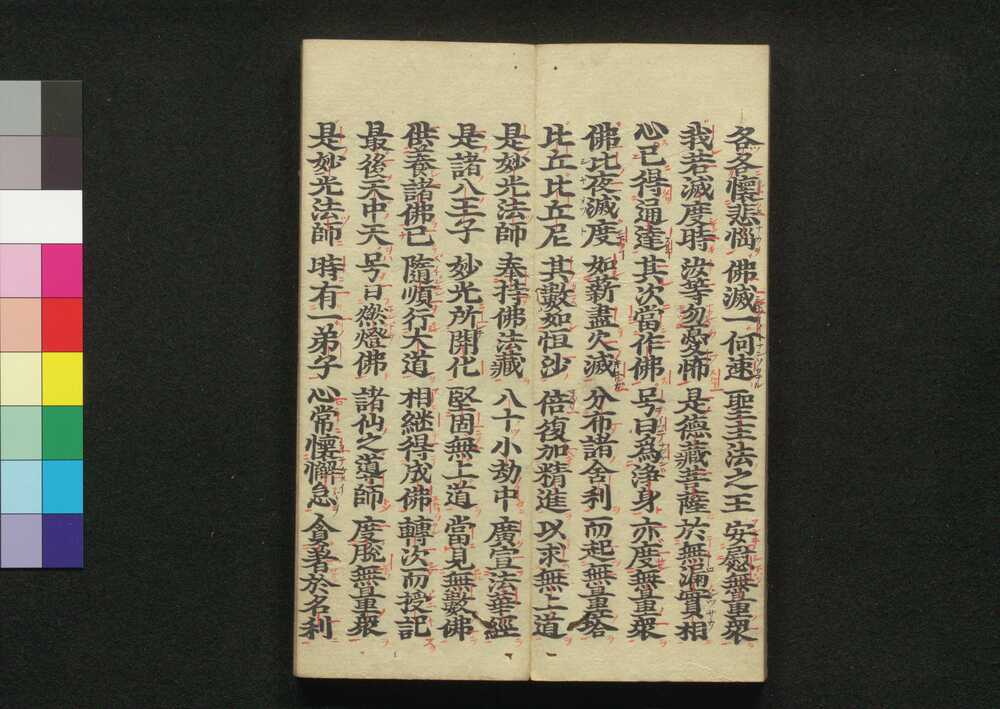 各各懷悲惱 佛滅一何速 聖主法之王 安慰無量衆
我若滅度時 汝等勿憂怖 是德藏菩薩 於無漏實相
心已得通達 其次當作佛 号曰為淨身 亦度無量衆
佛此夜滅度 如薪盡火滅 分布諸舍利 而起無量塔
比丘比丘尼 其數如恒沙 倍復加精進 以求無上道
是妙光法師 奉持佛法藏 八十小劫中 廣宣法華經
是諸八王子 妙光所開化 堅固無上道 當見無數佛
供養諸佛已 隨順行大道 相継得成佛 轉次而授記
最後天中天 号曰燃燈佛 諸仙之導師 度脫無量衆
是妙光法師 時有一弟子 心常懷懈怠 貪著於名利